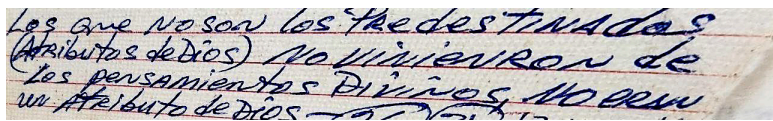 Los que no son los PRedestinados
(Atributos de Dios) no viniENRON de
Los pensamientos Divinos, no eran
un Atributo de Dios